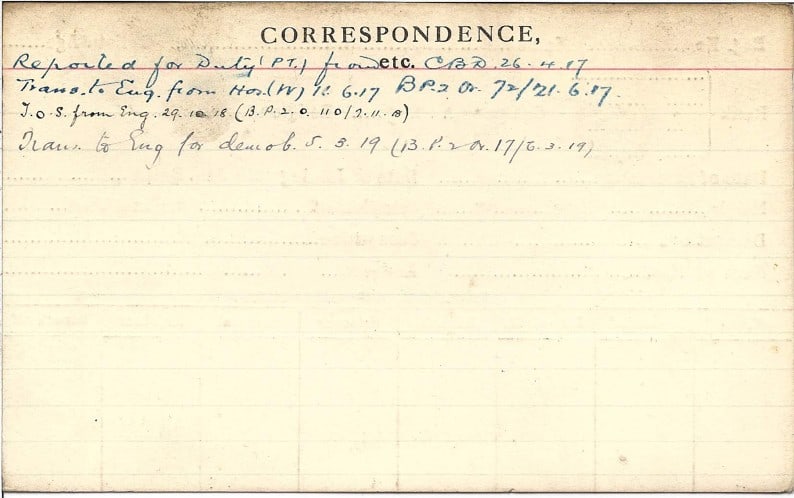 CORRESPONDENCE,
etc.
Reported for Duty (P.T.) from C.B.D. 26.4.17
Trans. to Eng. from Hos. (W) 12.6.17 B.P.2 Or. 72/21.6.17.
T.O.S. from Eng. 29.10.18 (B.P.2.O. 110/7.11.18)
Trans. to Eng for demob. 5.3.19 (B.P.2 Or. 17/6.3.19)